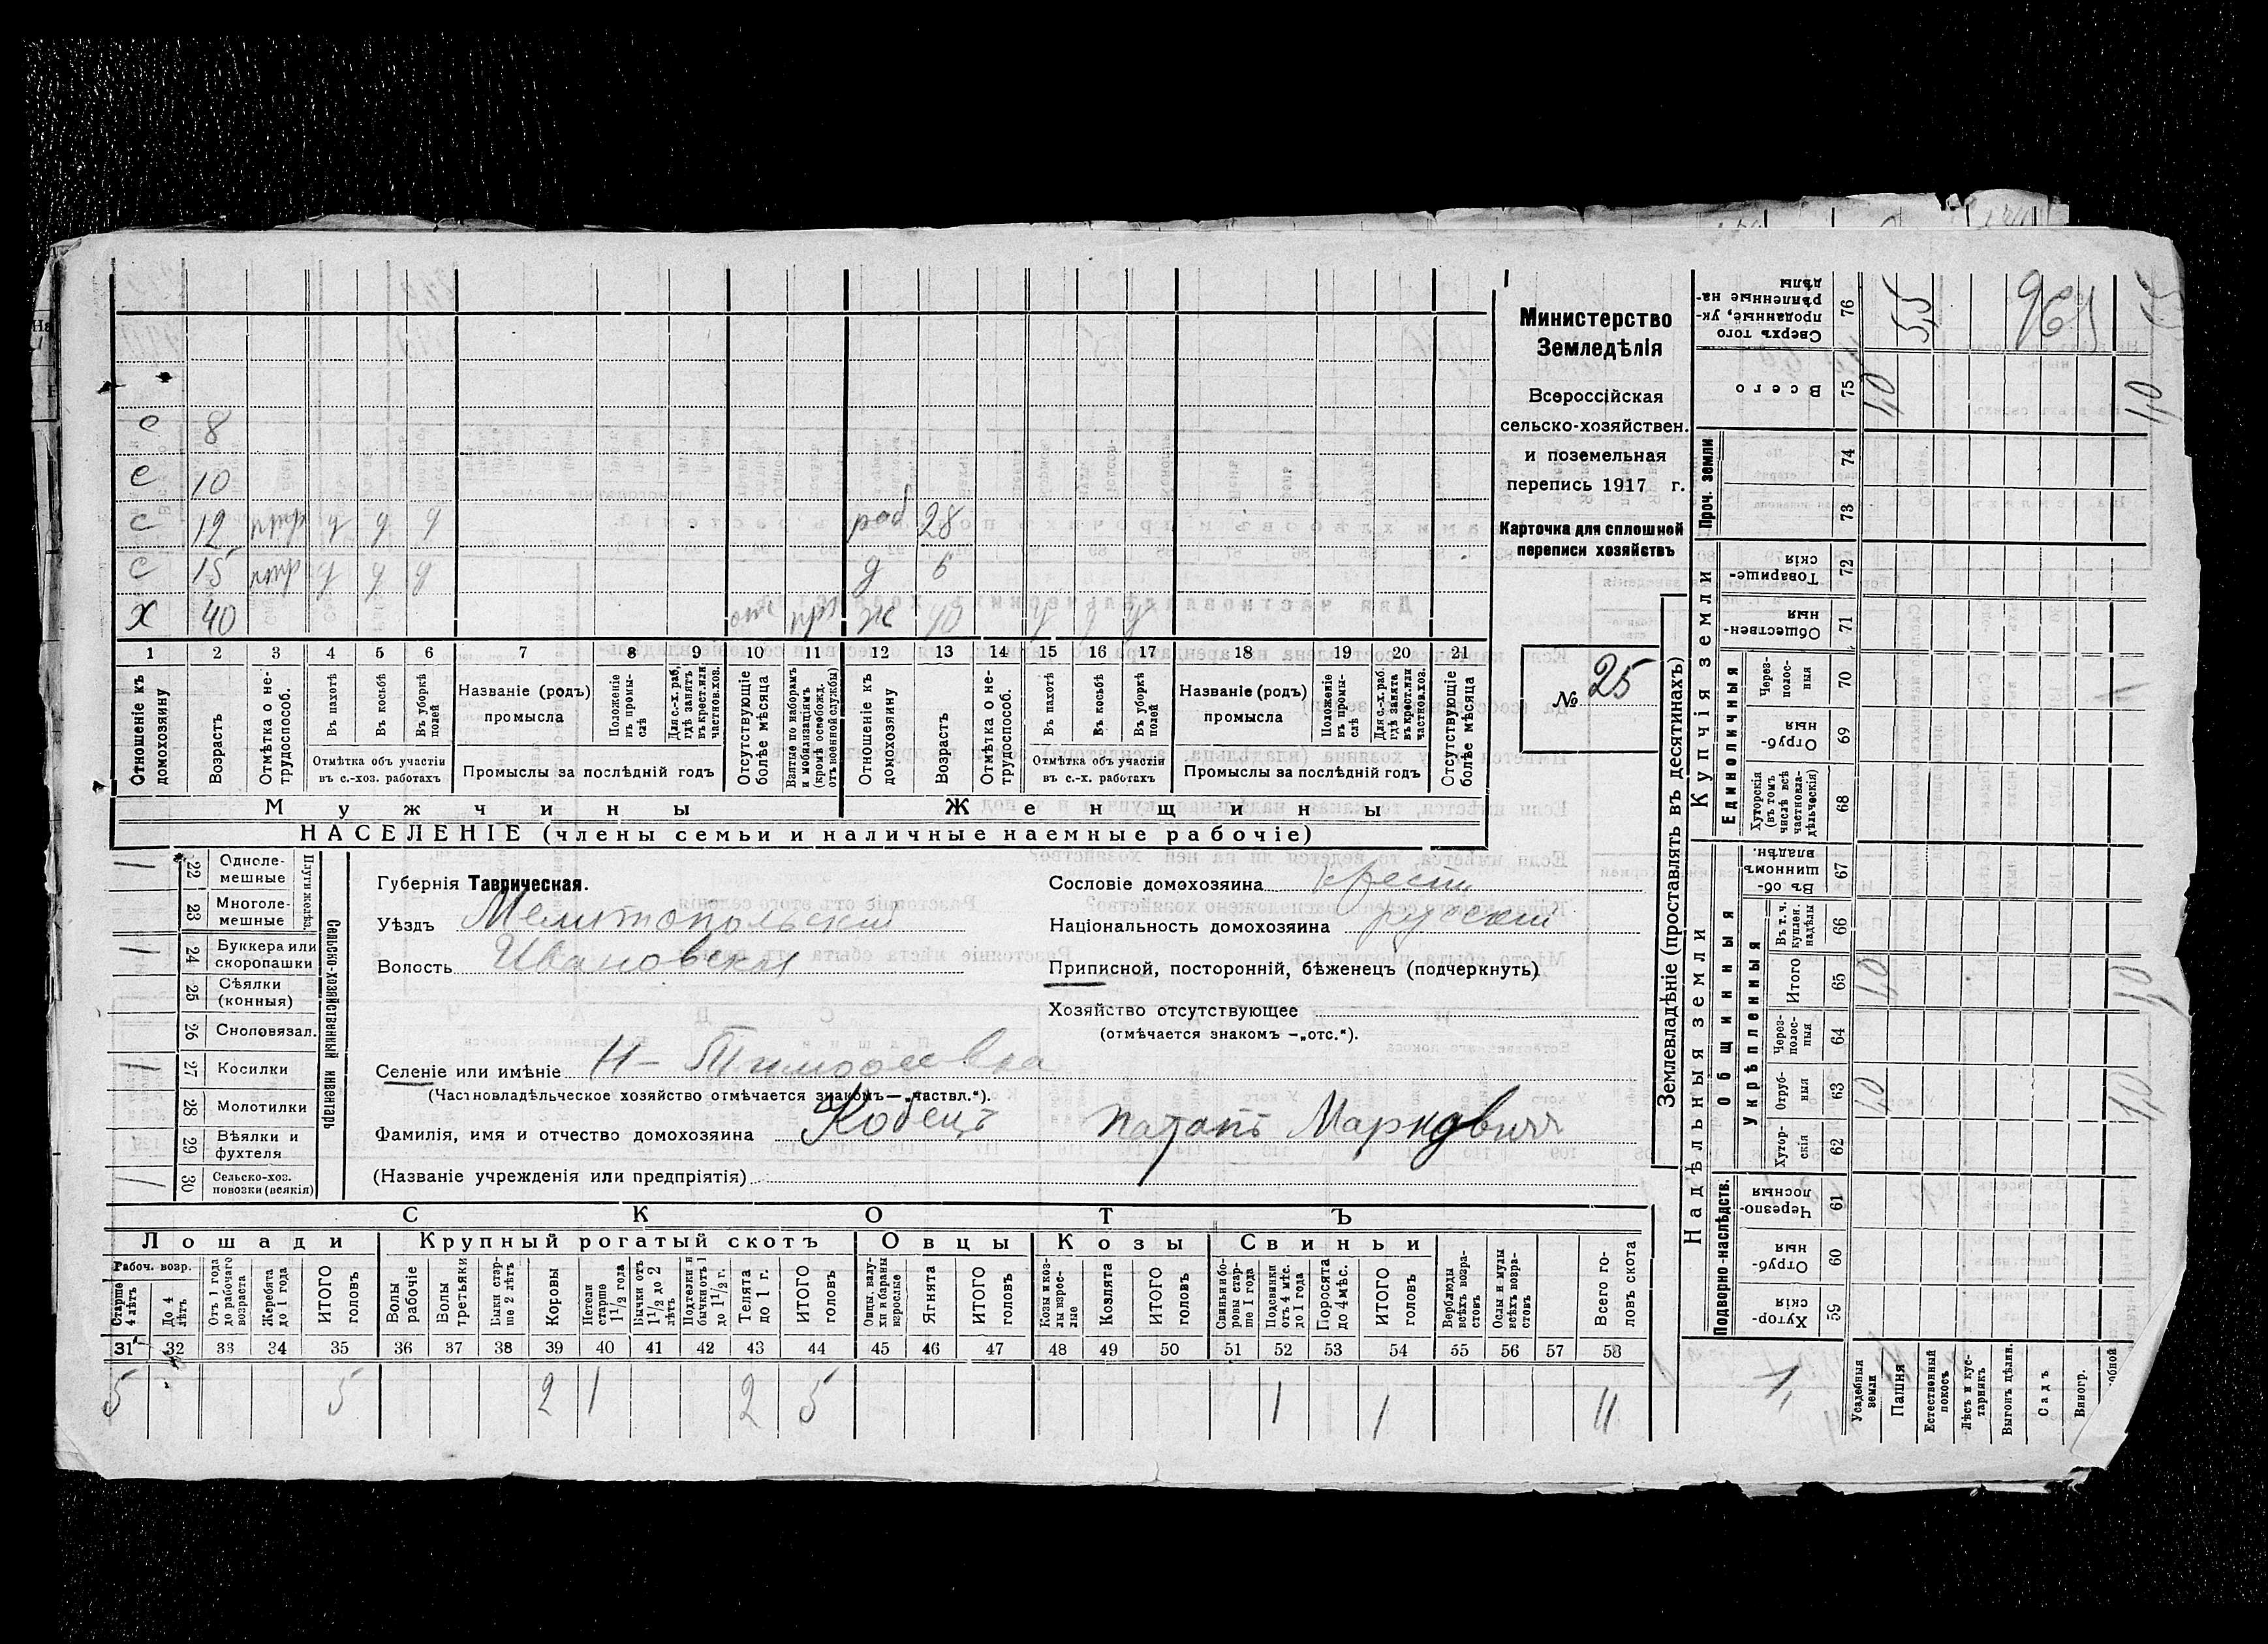 с 8
с 10
с 12 у у у раб 28
с 15 у у у д 6
х 40 отс прз ж 40 у у у
1 2 3 4 5 6 7 8 9 10 11 12 13 14 15 16 17 18 19 20 21
Отношеніе къ домохозяину
Возрастъ
Отмѣтка о не-трудоспособ.
Въ пахотѣ
Въ косьбѣ
Въ уборкѣ полей
Отмѣтка объ участіи въ с.-хоз. работахъ
Названіе (родъ) промысла
Положеніе въ промы-слѣ
Для с.-х. раб. гдѣ занятъ въ крест. или частновл. хоз.
Промыслы за послѣдній годъ
Отсутствующіе болѣе мѣсяца
Взятые по наборамъ и мобилизаціямъ (кромѣ освобожд. отъ военной службы)
Отношеніе къ домохозяину
Возрастъ
Отмѣтка о не-трудоспособ.
Въ пахотѣ
Въ косьбѣ
Въ уборкѣ полей
Отмѣтка объ участіи въ с.-х. работахъ
Названіе (родъ) промысла
Положеніе въ промы-слѣ
Для с.-х. раб. гдѣ занята въ крест. или частнов. хоз.
Промыслы за послѣдній годъ
Отсутствующіе болѣе мѣсяца
Мужчины Женщины
НАСЕЛЕНІЕ (члены семьи и наличные наемные рабочіе)
Министерство
Земледѣлія
Всероссійская
сельско-хозяйствен.
и поземельная
перепись 1917 г.
Карточка для сплошной
переписи хозяйствъ
№ 25
Сельско-хозяйственный инвентарь
Плуги желѣз.
1 22 Однолемешные
23 Многоле-мешные
1 24 Буккера или скоропашки
25 Сѣялки (конныя)
26 Сноповязал.
1 27 Косилки
28 Молотилки
1 29 Вѣялки и фухтеля
1 30 Сельско-хоз. повозки (всякія)
Губернія Таврическая.
Уѣздъ Мелитопольскій
Волость Ивановская
Сословіе домохозяина крест
Національность домохозяина русскій
Приписной, посторонній, бѣженецъ (подчеркнуть)
Хозяйство отсутствующее
(отмѣчается знакомъ —„отс.“).
Селеніе или имѣніе Н-Тимофеевка
(Частновладѣльческое хозяйство отмѣчается знакомъ—„частвл.“).
Фамилія, имя и отчество домохозяина Кобецъ Патапъ Марковичъ
(Названіе учрежденія или предпріятія)
СКОТЪ
Лошади Крупный рогатый скотъ Овцы Козы Свиньи
Рабоч. возр.
Старше 4 лѣтъ
До 4 лѣтъ
Отъ 1 года до рабочаго возраста
Жеребята до 1 года
ИТОГО головъ
Волы рабочіе
Волы третьяки
Быки стар-ше 2 лѣтъ
Коровы
Нетели старше 1 1/2 года
Бычки отъ 1 1/2 до 2 лѣтъ
Подтелки и бычки отъ 1 до 1 1/2 г.
Телята до 1 г.
ИТОГО головъ
Овцы, валу-хи и бараны взрослые
Ягнята
ИТОГО головъ
Козы и коз-лы взрос-лые
Козлята
ИТОГО головъ
Свиньи и бо-ровы стар-ше 1 года
Подсвинки отъ 4 мѣс. до 1 года
Поросята до 4 мѣс.
ИТОГО головъ
Верблюды всѣхъ возра-стовъ
Ослы и мулы всѣхъ возра-стовъ
Всего го-ловъ скота
31 32 33 34 35 36 37 38 39 40 41 42 43 44 45 46 47 48 49 50 51 52 53 54 55 56 57 58
5 5 2 1 2 5 1 1 11
Землевладѣніе (проставлять въ десятинахъ)
Сверхъ того проданные, ук-рѣпленные на-дѣлы 76 55 96
Всего 75 40 40
Проч. земли 74 73
Купчія земли
Товарище-скія 72
Обществен-ныя 71
Единоличныя
Через-полос-ныя 70
Отруб-ныя 69
Хуторскія (въ томъ числѣ всѣ частновла-дѣльческія) 68
Надѣльныя земли
Общинныя
Въ об-щинномъ владѣн. 67
Укрѣпленныя
Въ т. ч. куплен. надѣлы 66
Итого 65 40 40
Через-полос-ныя 64
Отруб-ныя 63 40 40
Хутор-скія 62
Подворно-наслѣдств.
Черезпо-лосныя 61
Отруб-ныя 60
Хутор-скія 59
1,
Усадебныя земли
Пашня
Естественный покосъ
Лѣсъ и кус-тарникъ
Выгонъ цѣлин.
Садъ
Виногр.